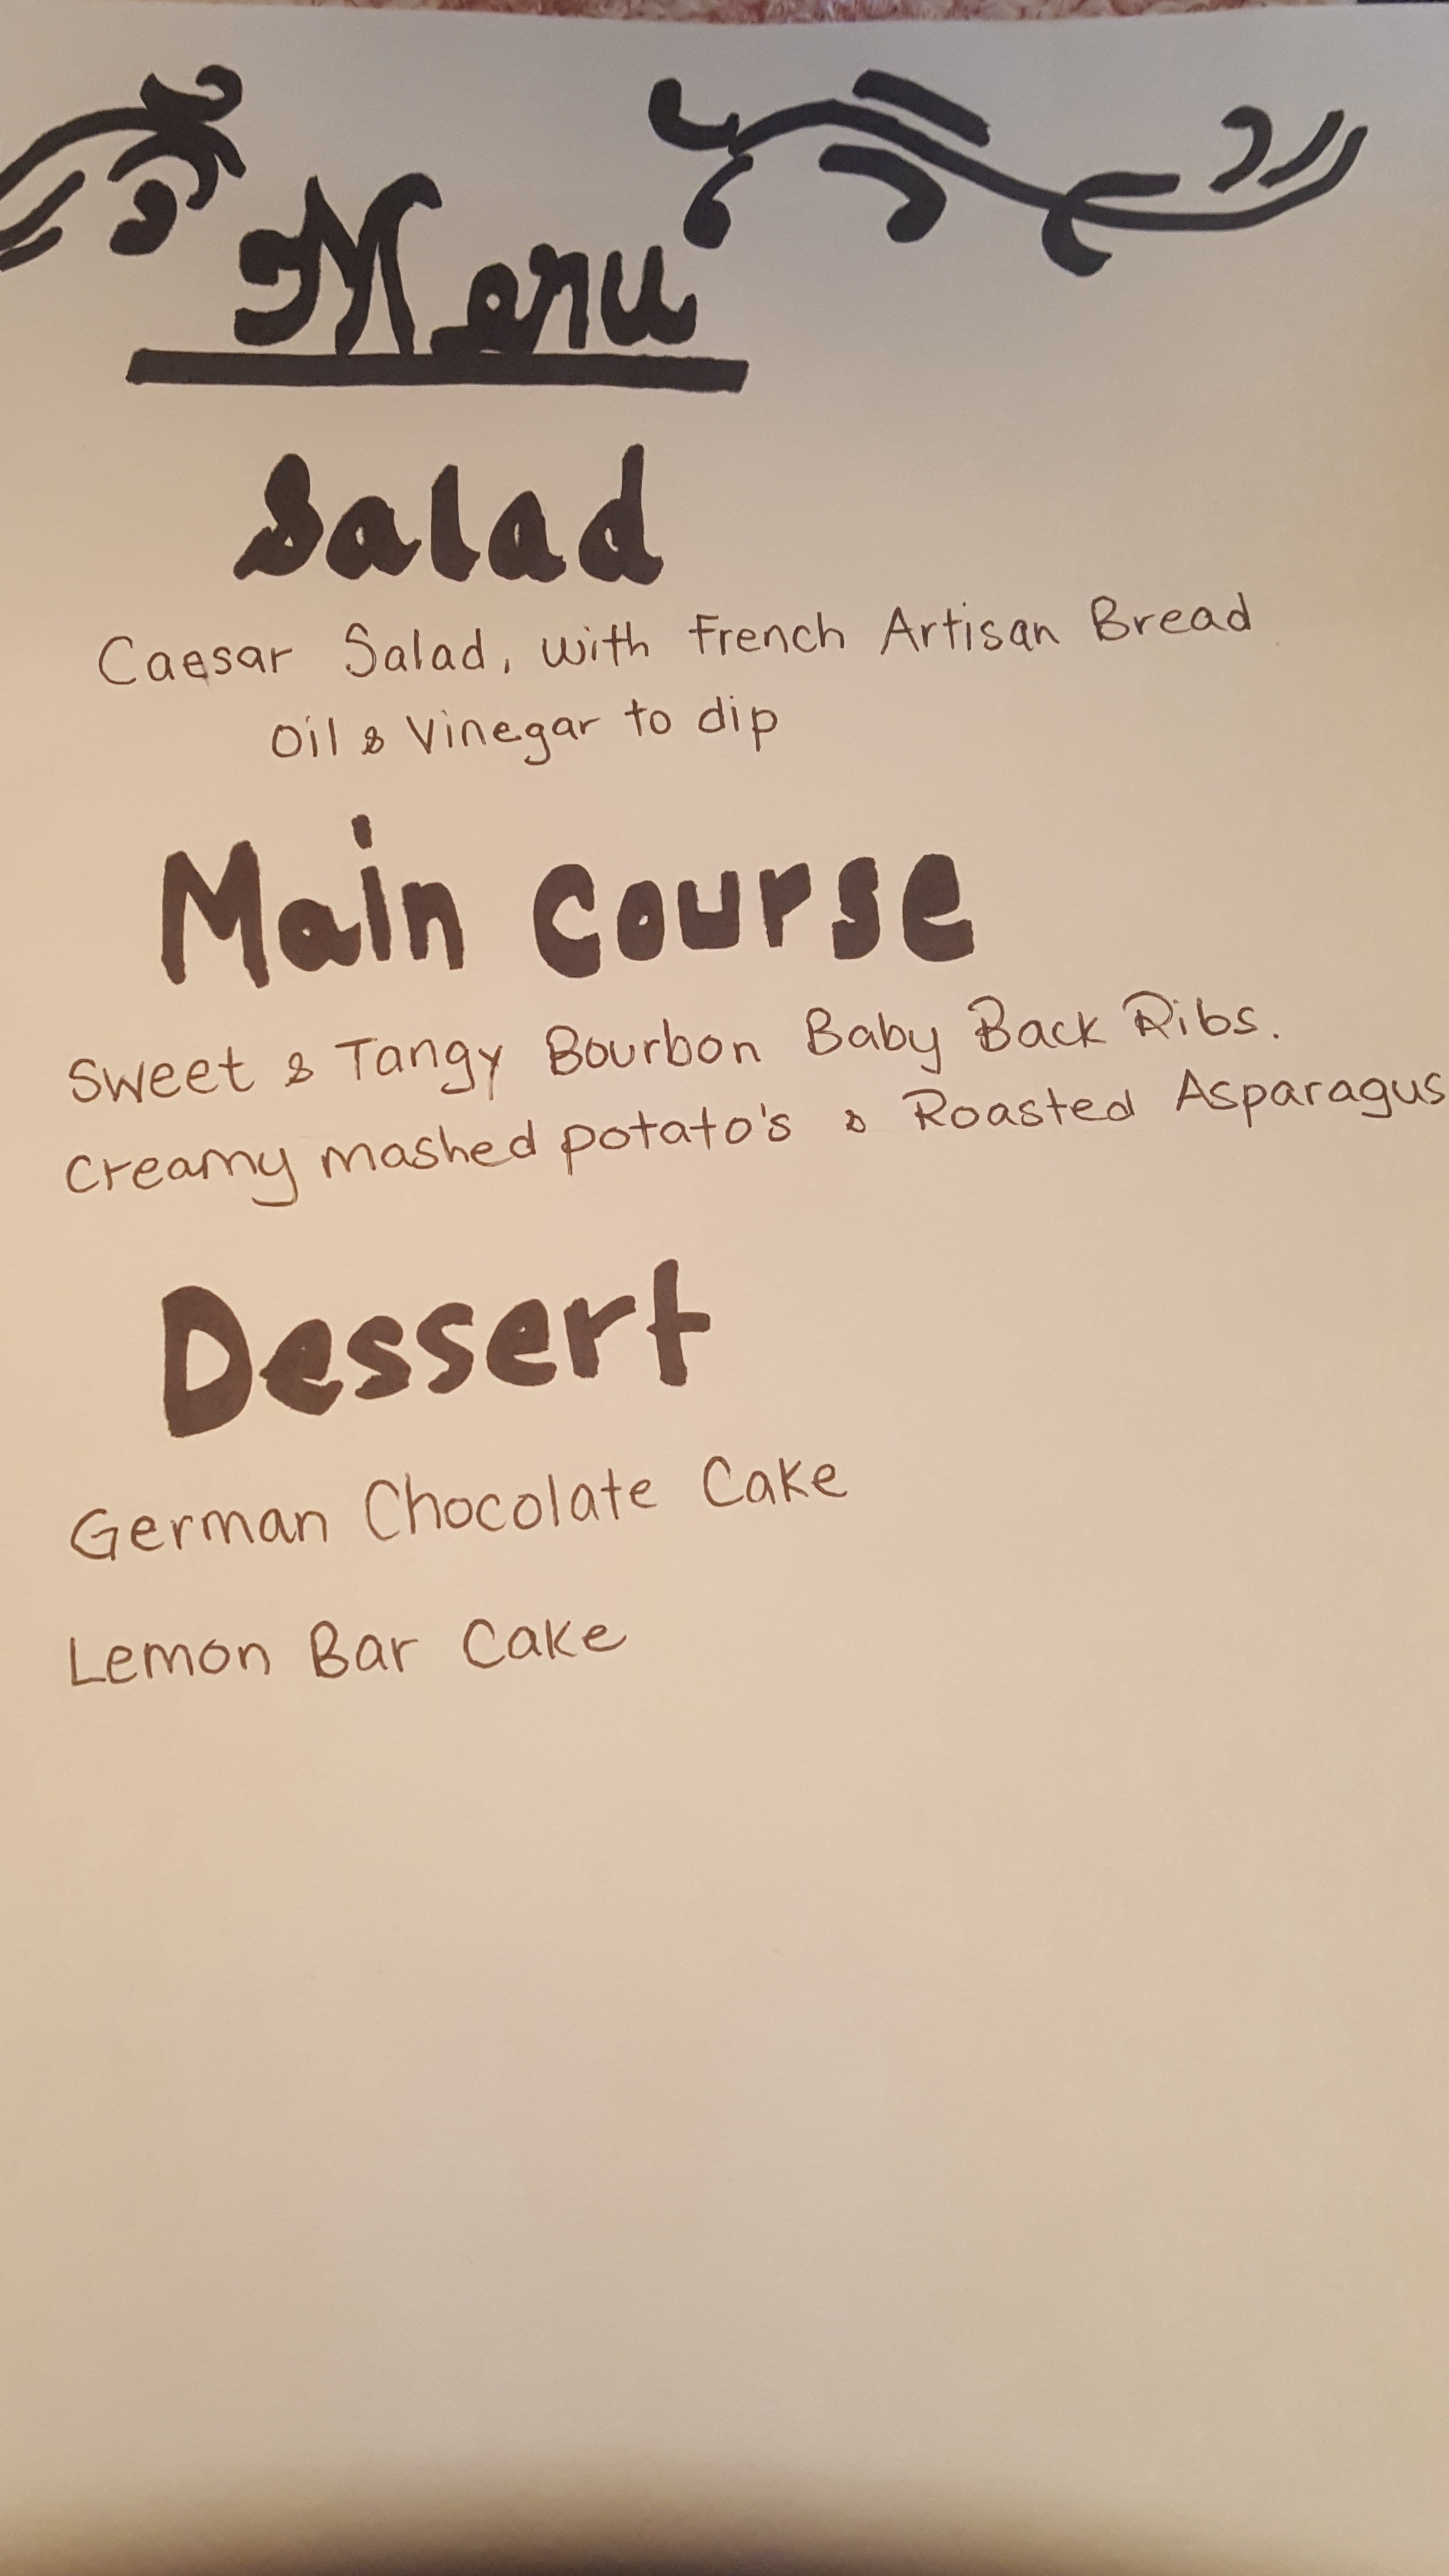 Menu
Salad
Caesar Salad, with French Artisan Bread
Oil & Vinegar to dip
Main Course
Sweet & Tangy Bourbon Baby Back Ribs.
Creamy mashed potato's & Roasted Asparagus
Dessert
German Chocolate Cake
Lemon Bar Cake